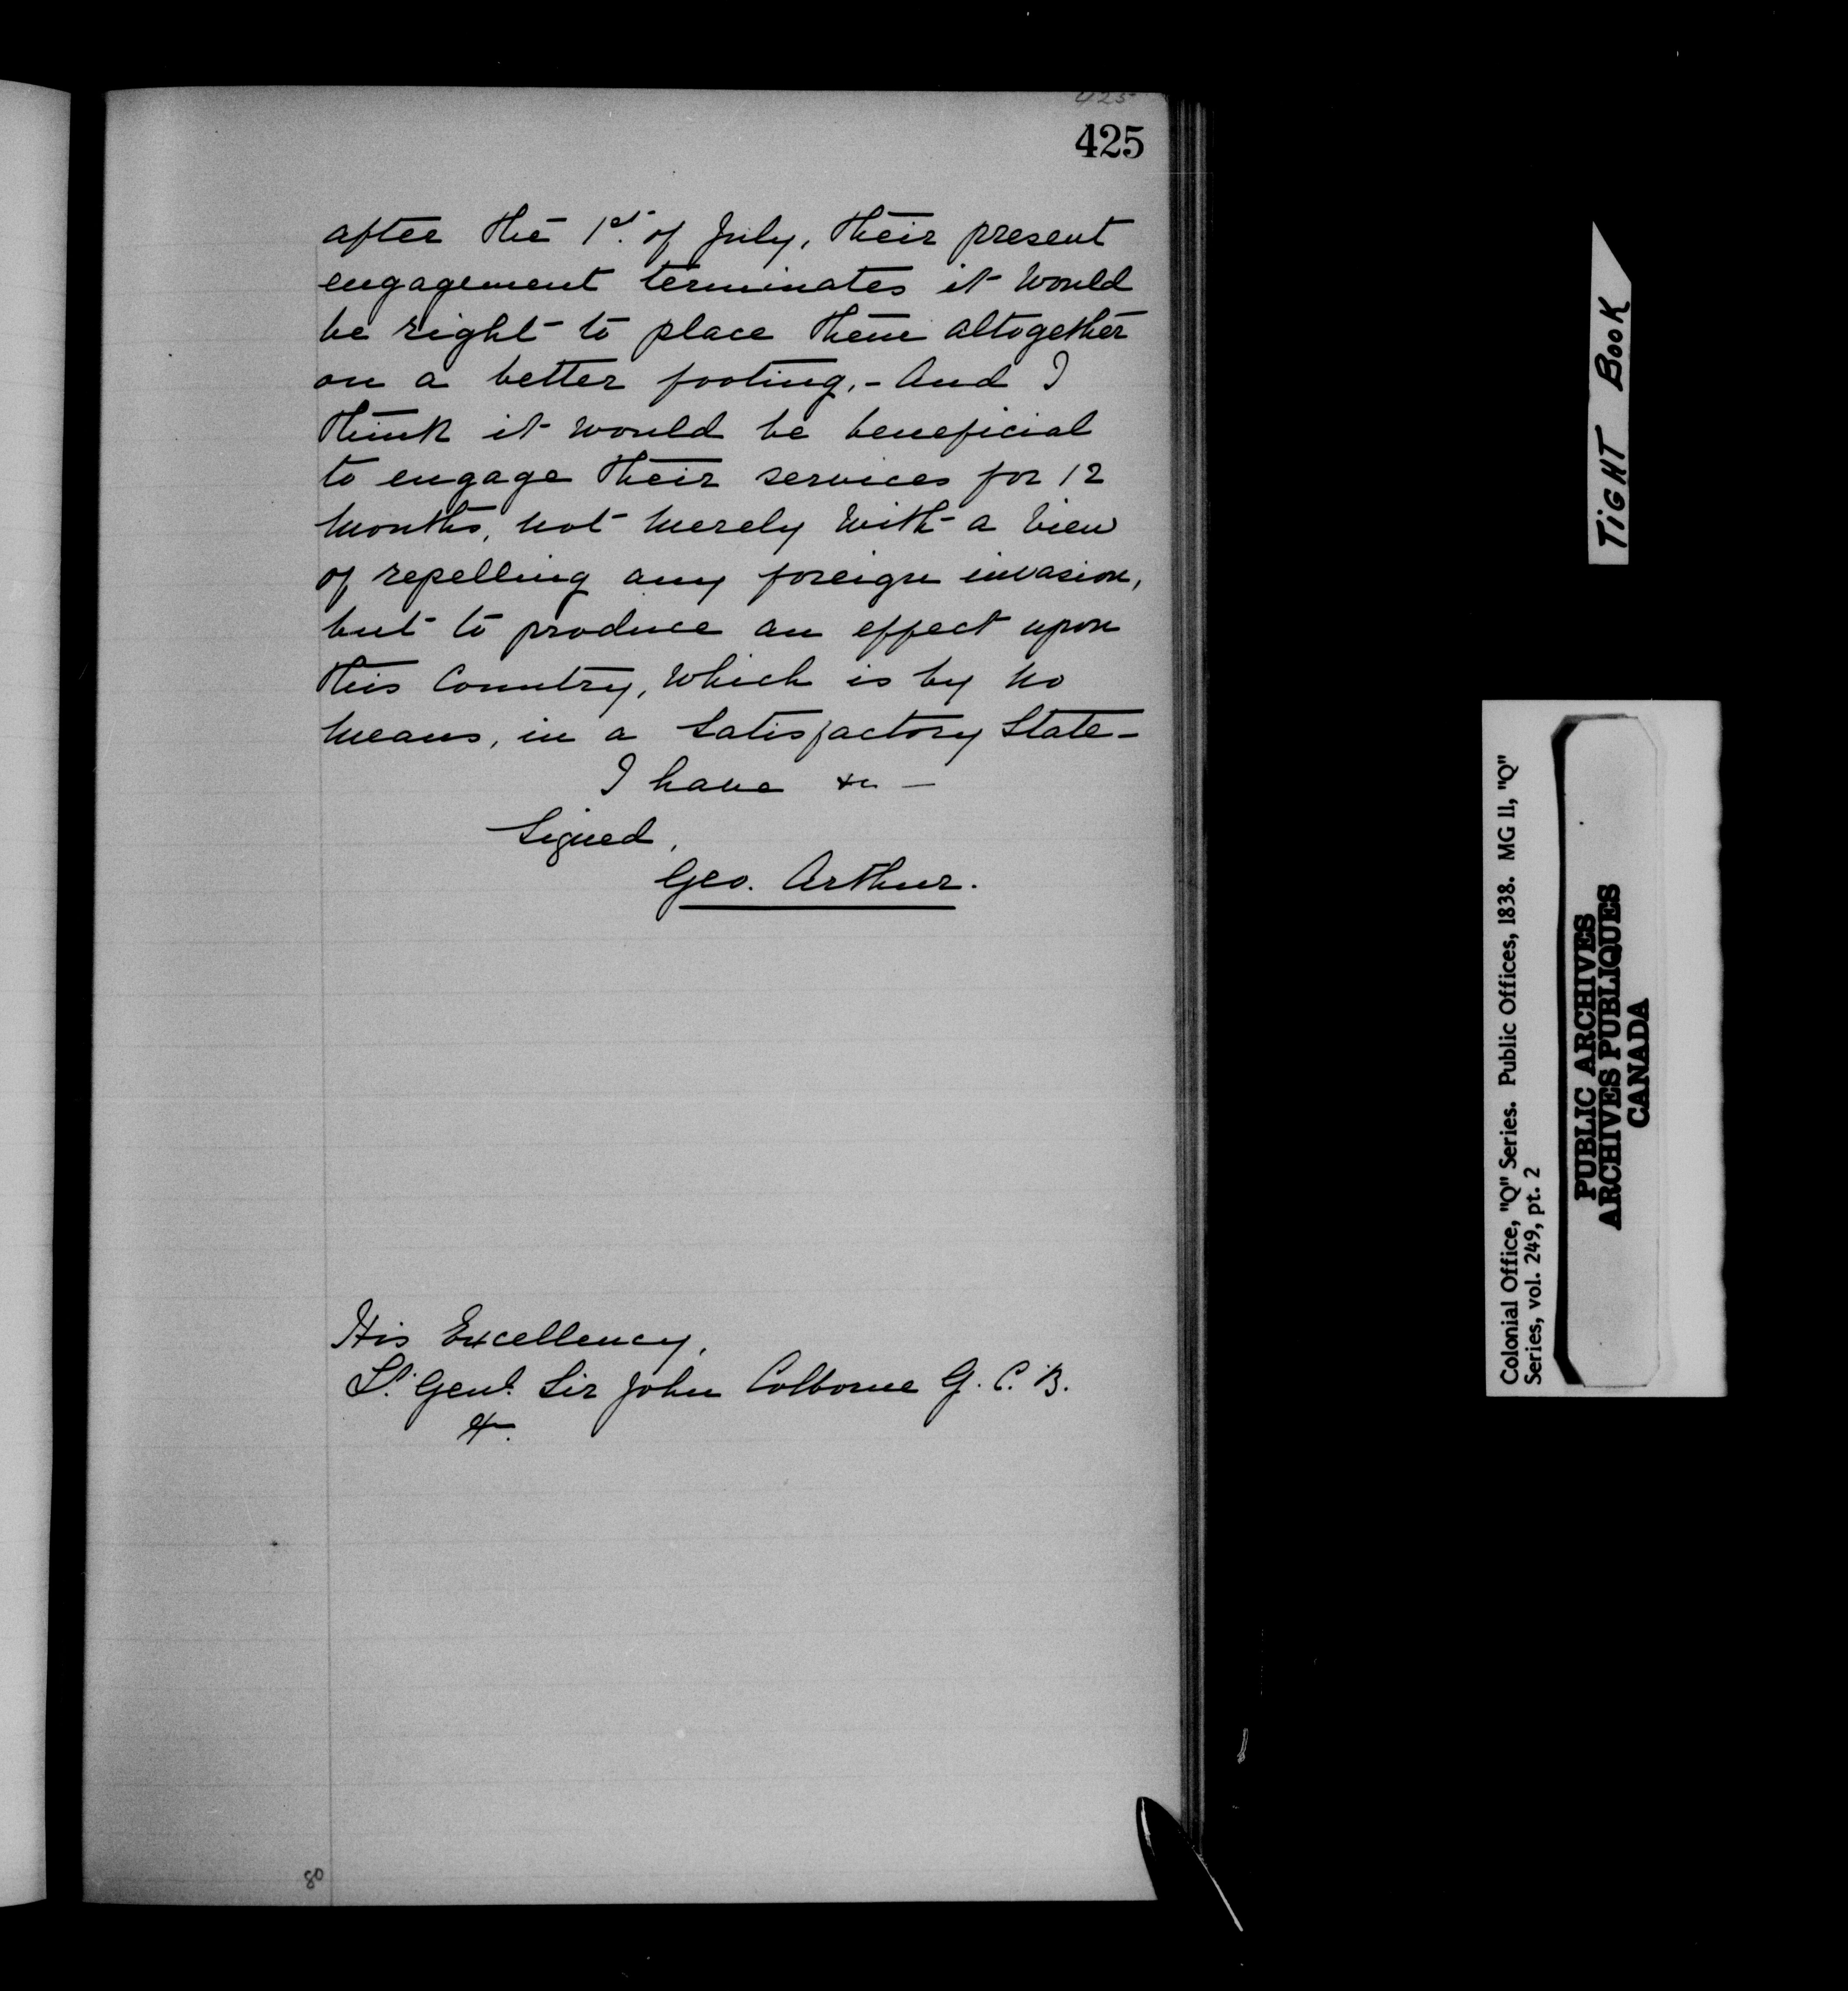 425
425
after the 1st. of July, their present
engagement terminates it would
be right to place them altogether
on a better footing, - And I
think it would be beneficial
to engage their services for 12
months, not merely with a view
of repelling any foreign invasion,
but to produce an effect upon
this Country, which is by no
means, in a satisfactory State -
I have &c -
Signed,
Geo. Arthur.
His Excellency,
Lt. Genl. Sir John Colborne G. C. B.
&c.
80
TIGHT BOOK
Colonial Office, "Q" Series. Public Offices, 1838. MG 11, "Q"
Series, vol. 249, pt. 2
PUBLIC ARCHIVES
ARCHIVES PUBLIQUES
CANADA